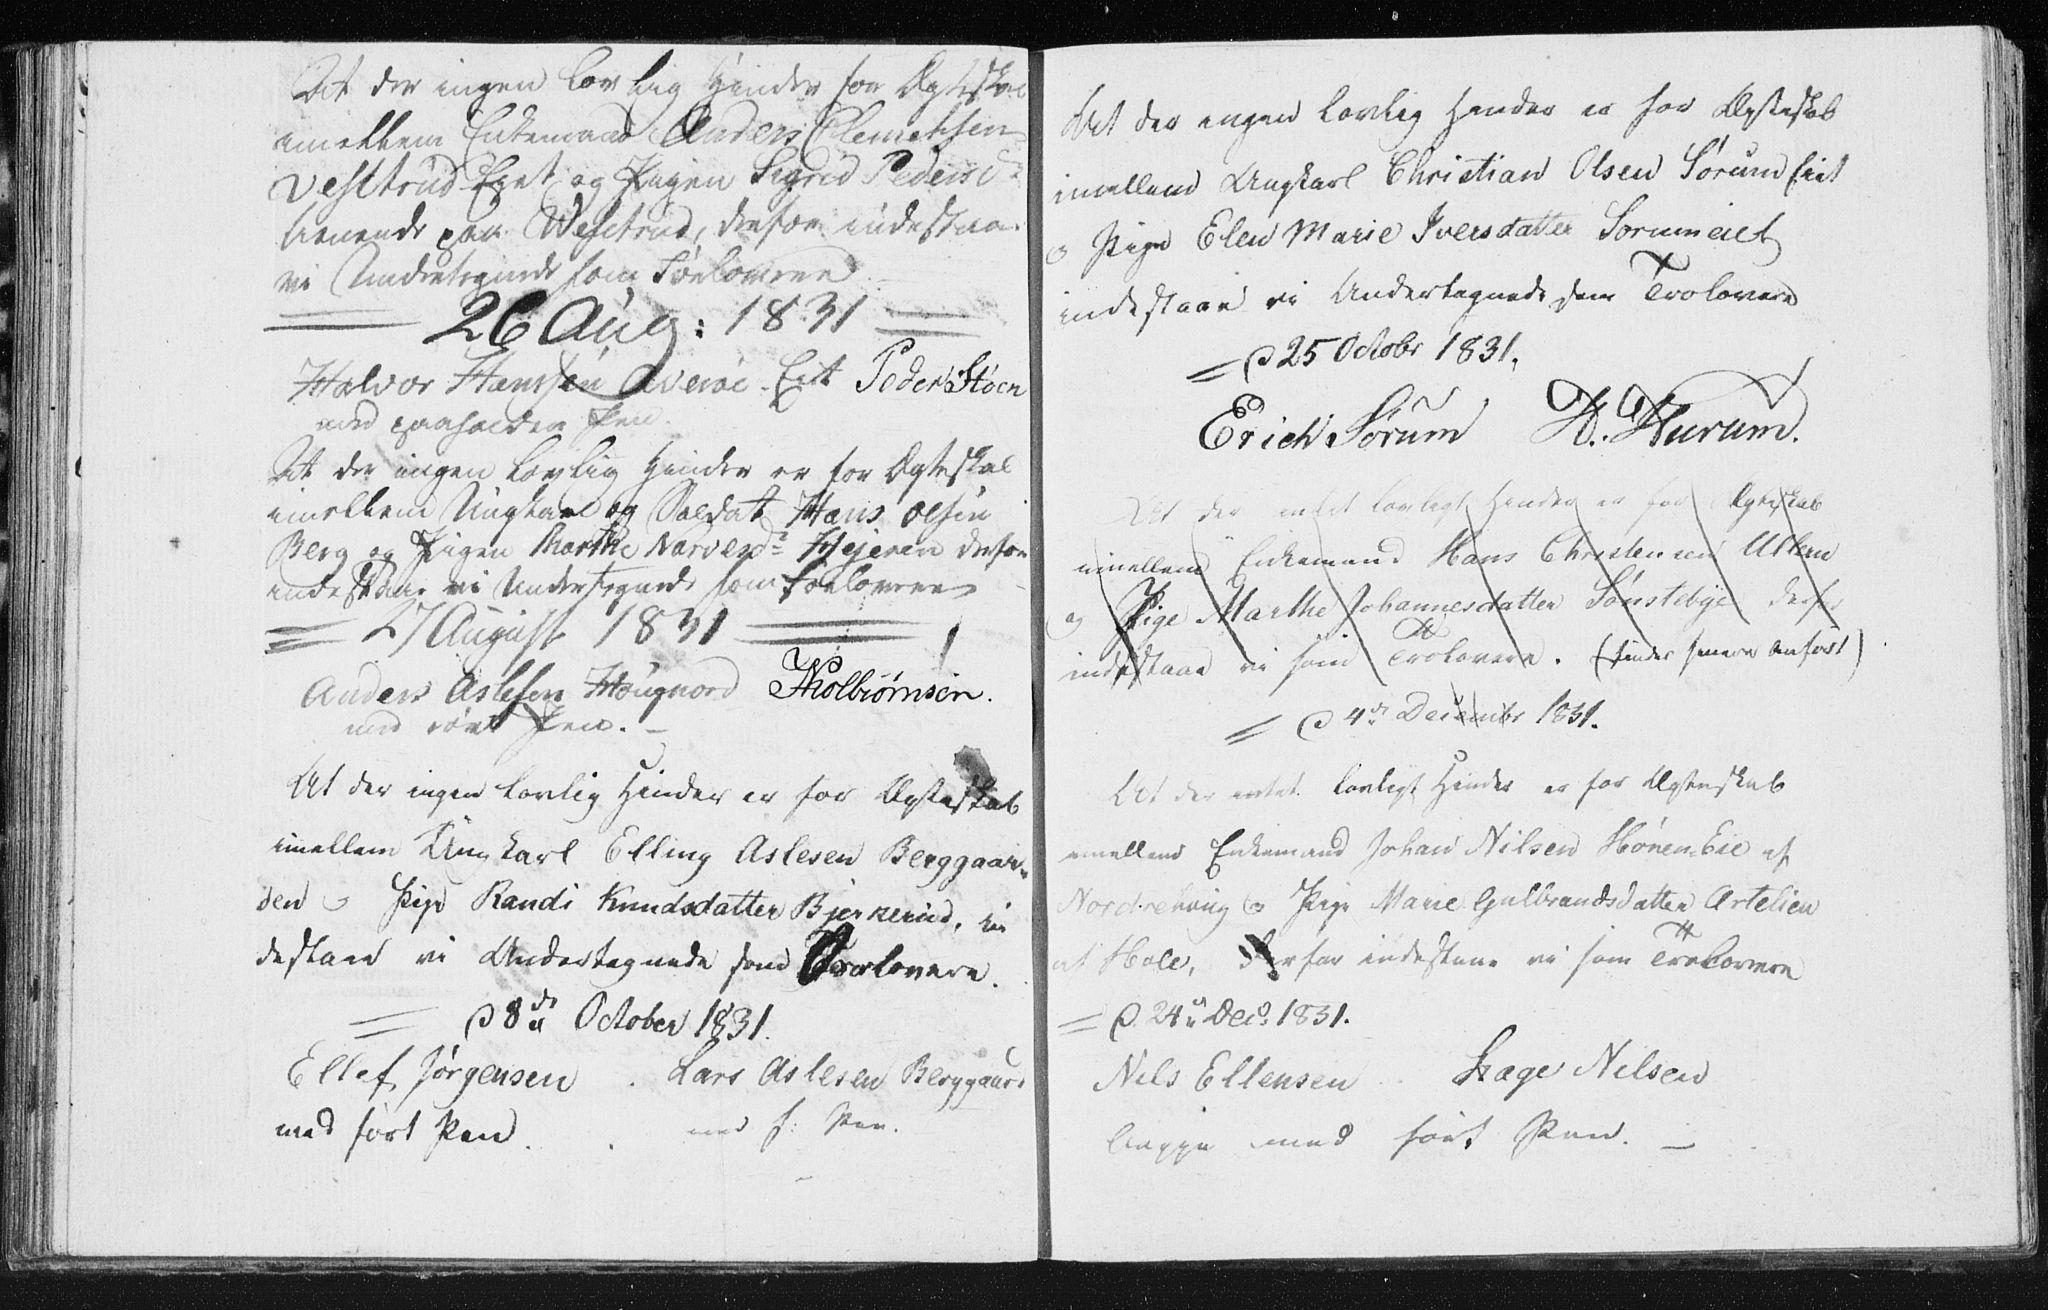 At der ingen lovlig Hinder for Ægteskab
imellem Enkemand Anders Clemetsen
Vesetrud Eiet og Pigen Sigrid Pedersdr
tienende paa Wesetrud, derfor indestaae
vi Undertegnede som Forlovere
26 Aug: 1831
Halvor Hansen Averøe-Eiet Peder Støen
med paaholden Pen.
At der ingen lovlig Hinder er for Ægteskab
imellem Ungkarl og Soldat Hans Olsen
Berg og Pigen Marthe Narvesdr derfor
indestaae vi Undertegnede som Forlovere
27 August 1831
Anders Aslesen Tholbiørnsen.
med ført Pen.
At der ingen lovlig Hinder er for Ægteskab
imellem Ungkarl Elling Aslesen Berggaar-
den og Pige Randi Knudsdatter Bjerkerud, in
destaae vi Undertegnede som Trolovere.
D 8de October 1831.
Ellef Jørgensen. Lars Aslesen Berggaard
med ført Pen. med f: Pen.
At der ingen lovlig Hinder er for Ægteskab
imellem Ungkarl Christian Olsen Sørum Eiet
og Pige Elen Marie Iversdatter Sørumeiet
indestaae vi Undertegnede som Trolovere
D 25 Octobr 1831.
Erich Sørum H. Hurum.
At der intet lovligt Hinder er for Ægteskab
imellem Enkemand Hans Christensen
og Pige Marthe Johannesdatter Sønsteby derfor
indestaae vi som Trolovere. (findes senere anført)
D 4de Decembr 1831.
At der intet lovligt Hinder er for Ægteskab
imellem Enkemand Johan Nilsen Hønen-Eie af
Norderhoug og Pige Marie Gulbrandsdatter Artelien
af Hole, derfor indestaae vi som Trolovere
D. 24de Decr 1831.
Nils Ellensen Hage Nilsen
begge med ført Pen.